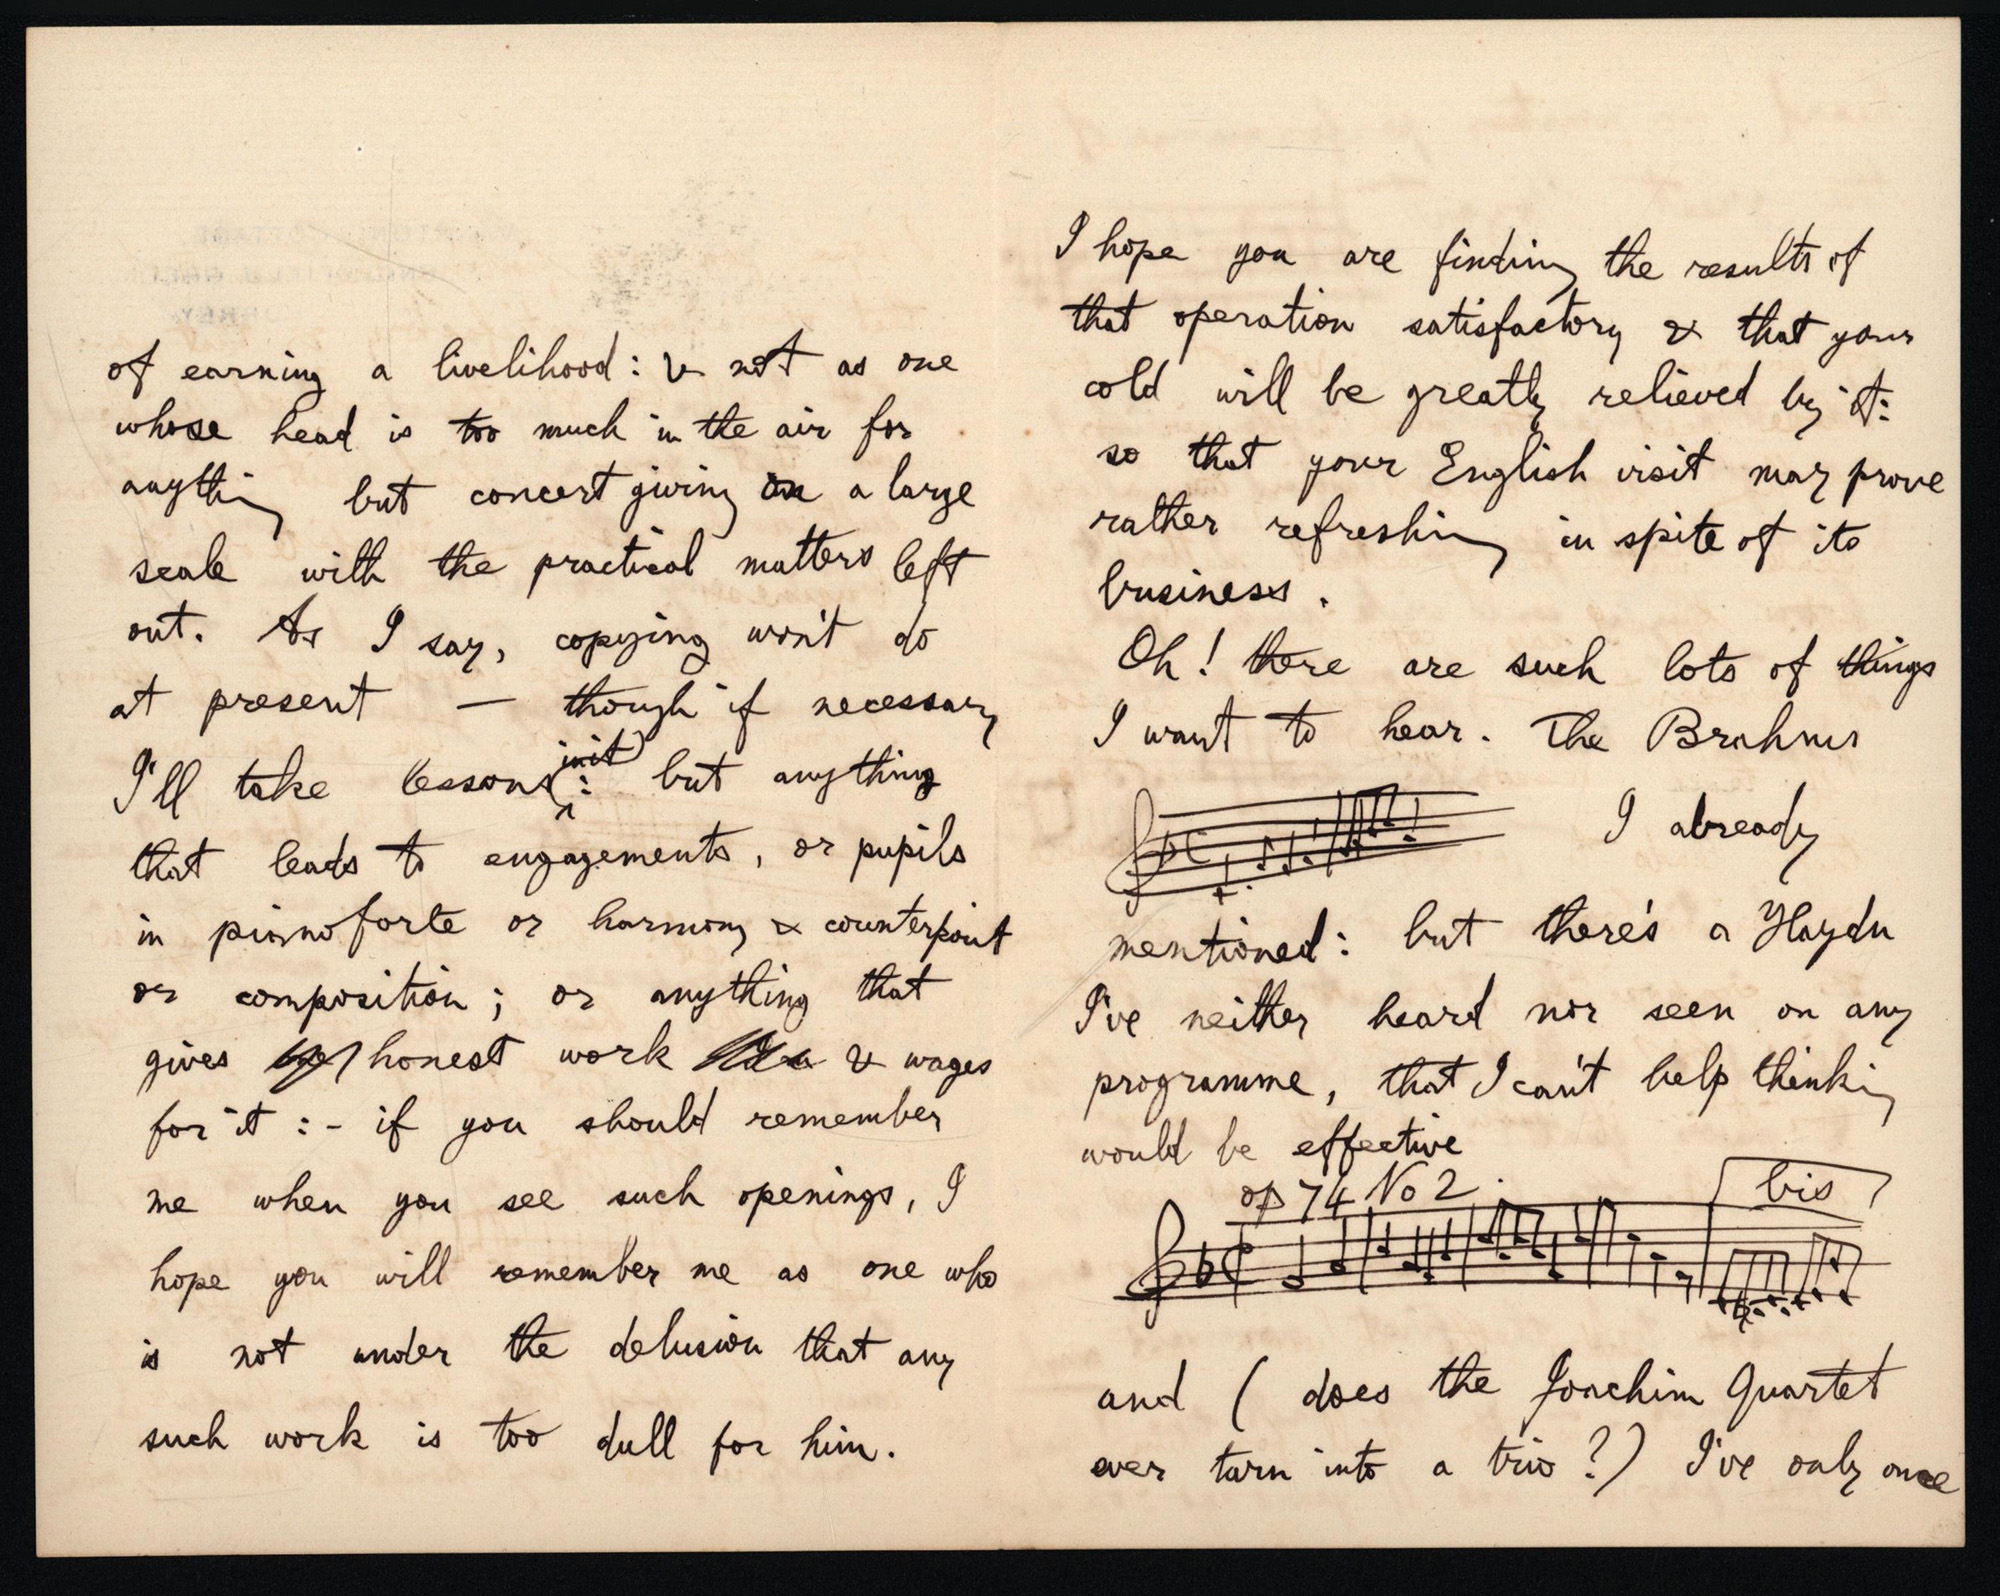 of earning a livelihood: & not as one
whose head is too much in the air for
anything but concert giving on a large
scale with the practical matters left
out. As I say, copying won't do
at present — though if necessary
I'll take lessons in it: but anything
that leads to engagements, or pupils
in pianoforte or harmony & counterpoint
or composition; or anything that
gives honest work & wages
for it :- if you should remember
me when you see such openings, I
hope you will remember me as one who
is not under the delusion that any
such work is too dull for him.
I hope you are finding the results of
that operation satisfactory & that your
cold will be greatly relieved by it:
so that your English visit may prove
rather refreshing in spite of its
business.
Oh! there are such lots of things
I want to hear. The Brahms
I already
mentioned: but there's a Haydn
I've neither heard nor seen on any
programme, that I can't help thinking
would be effective
op 74 No 2.
bis
and ( does the Joachim Quartet
ever turn into a trio?) I've only once